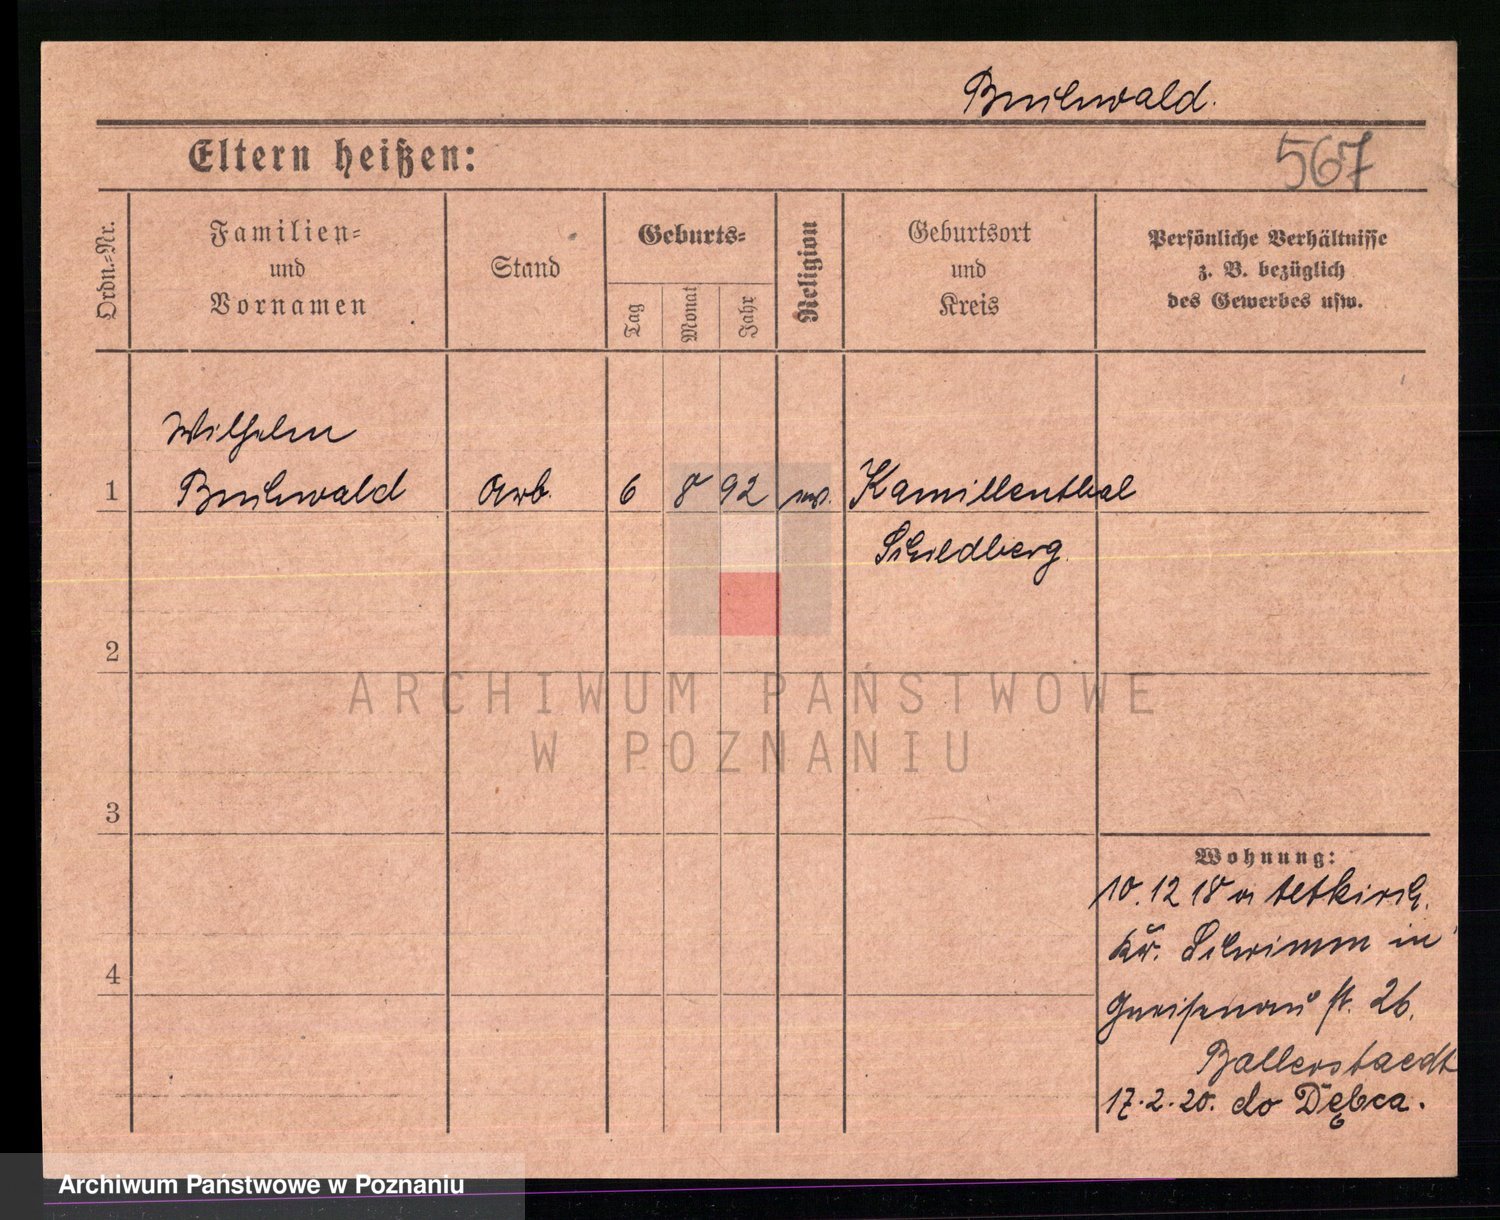 Buchwald.
Eltern heißen:
567
Ordn.-Nr.
Familien-
und
Vornamen
Stand
Geburts-
Tag
Monat
Jahr
Religion
Geburtsort
und
Kreis
Persönliche Verhältnisse
z. B. bezüglich
des Gewerbes usw.
Wilhelm
1 Buchwald Arb. 6 8 92 ev. Kamillenthal
Schildberg
2
ARCHIWUM PAŃSTWOWE
W POZNANIU
3
Wohnung:
10.12 18
Kr. Schrimm in
4
Gneisenau st. 26.
Ballerstaedt
17.2.20. do Dębca.
Archiwum Państwowe w Poznaniu